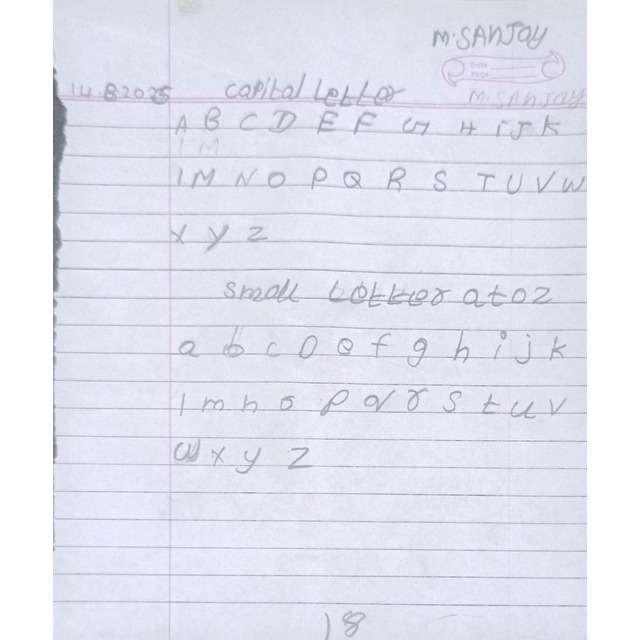 M.SANJAY
Date
Page
14.8.2025 Capital Letter M.SANJAY
A B C D E F G H i J K
I M
l M N O P Q R S T U V W
X Y Z
Small Letter a to z
a b c D Q f g h i j k
l m n o p q r s t u v
w x y z
18